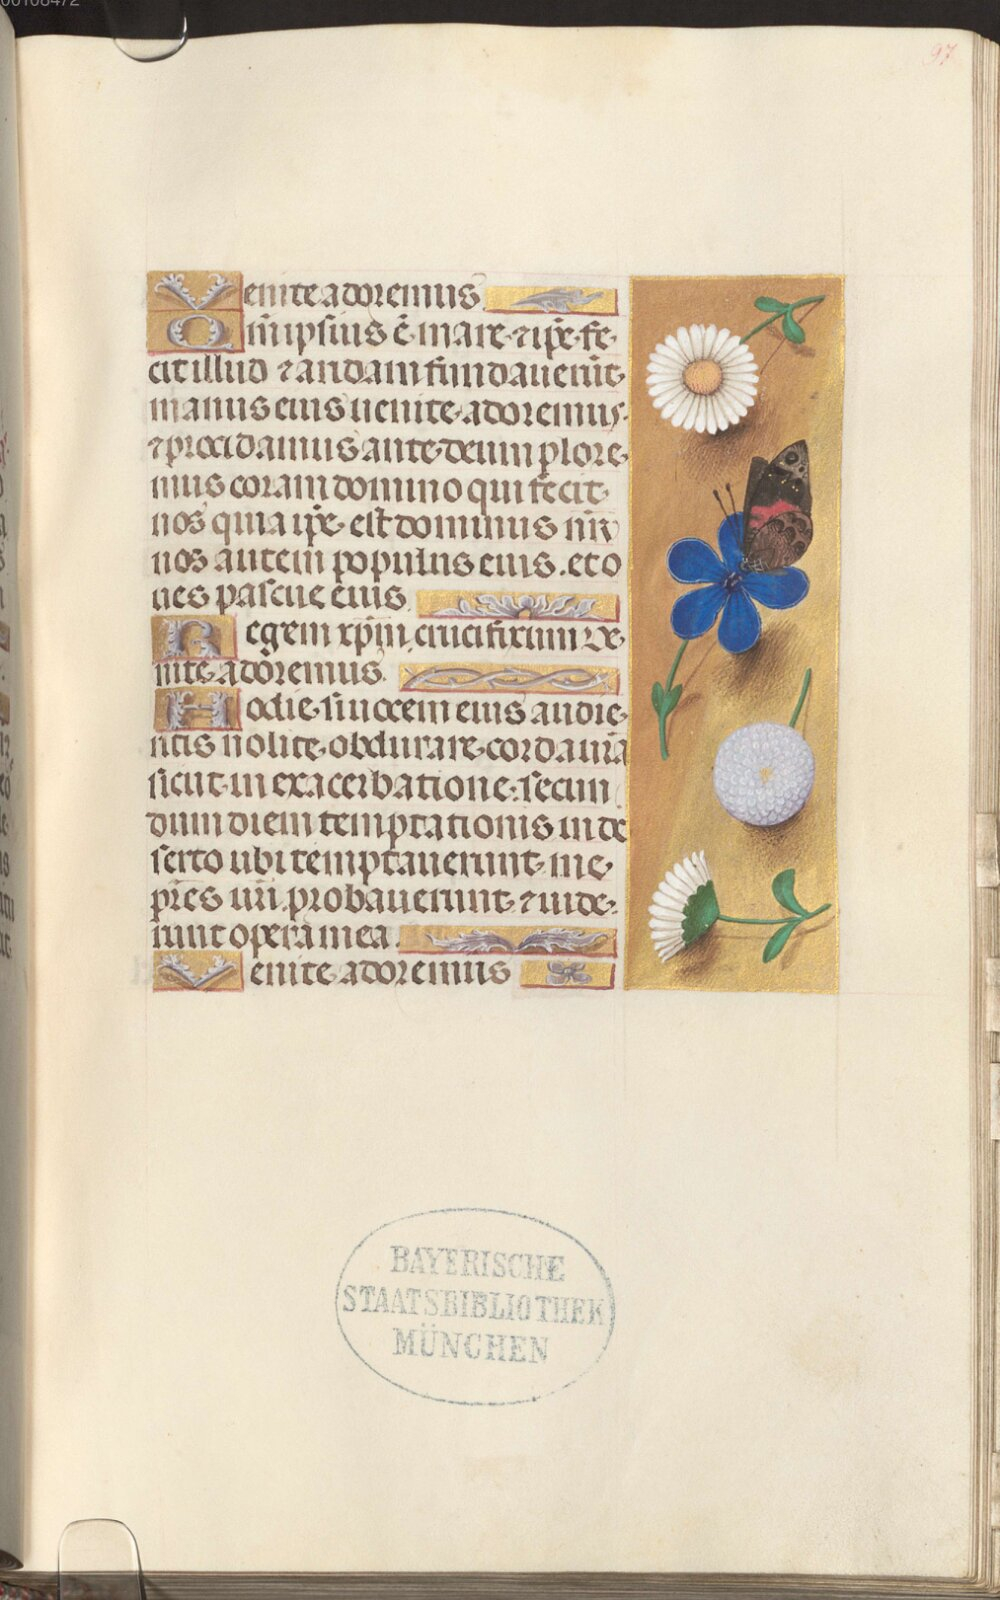 00108472
97
Venite adoremus
Qm̄ ipsius ē mare ⁊ ip̄e fe
cit illud ⁊ aridam fundauerūt
manus eius uenite adoremus
⁊ procidamus ante deum plore
mus coram domino qui fecit
nos quia ip̄e est dominus nr̄
nos autem populus eius . et o
ues pascue eius
Regem xp̄m crucifixum Ve
nite adoremus.
Hodie si uocem eius audie
ritis nolite obdurare corda ur̄a
sicut in exacerbatione secun
dum diem temptationis in de
serto ubi temptauerunt me
pr̄es ur̄i probauerunt ⁊ uide
runt opera mea.
Venite adoremus
BAYERISCHE
STAATSBIBLIOTHEK
MÜNCHEN